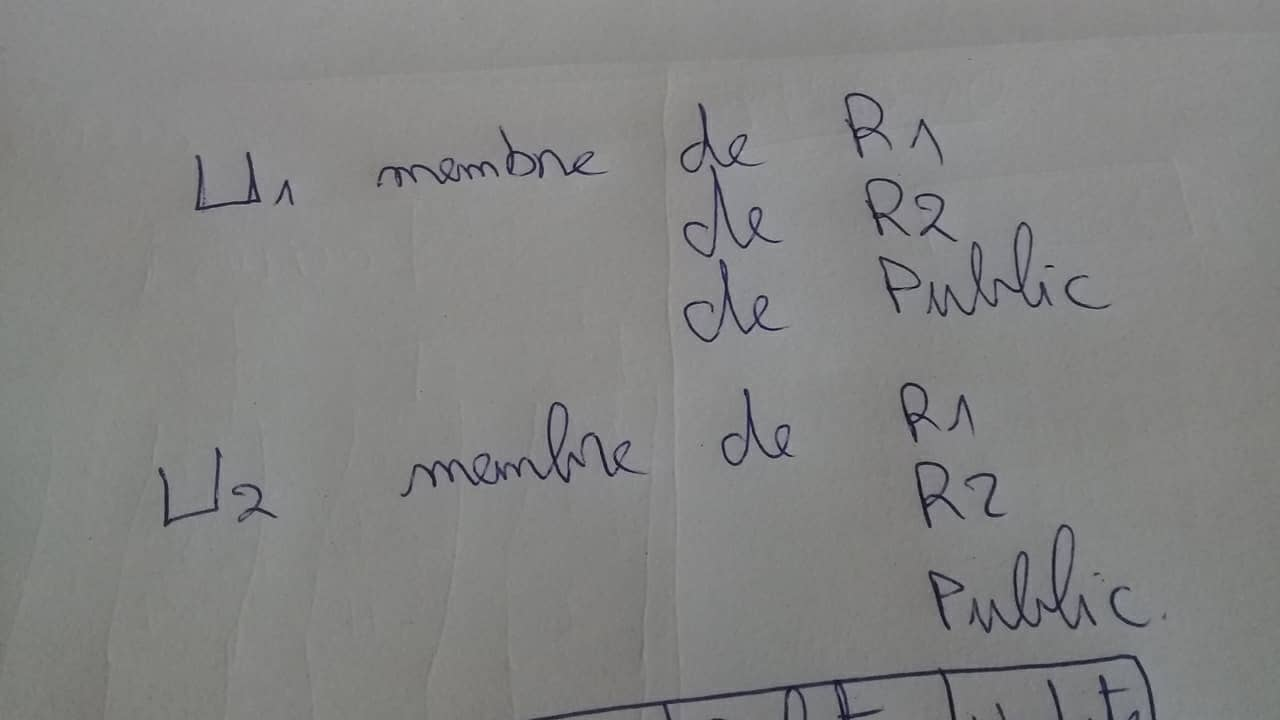 U1 membre de R1
de R2
de Public
U2 membre de R1
R2
Public.